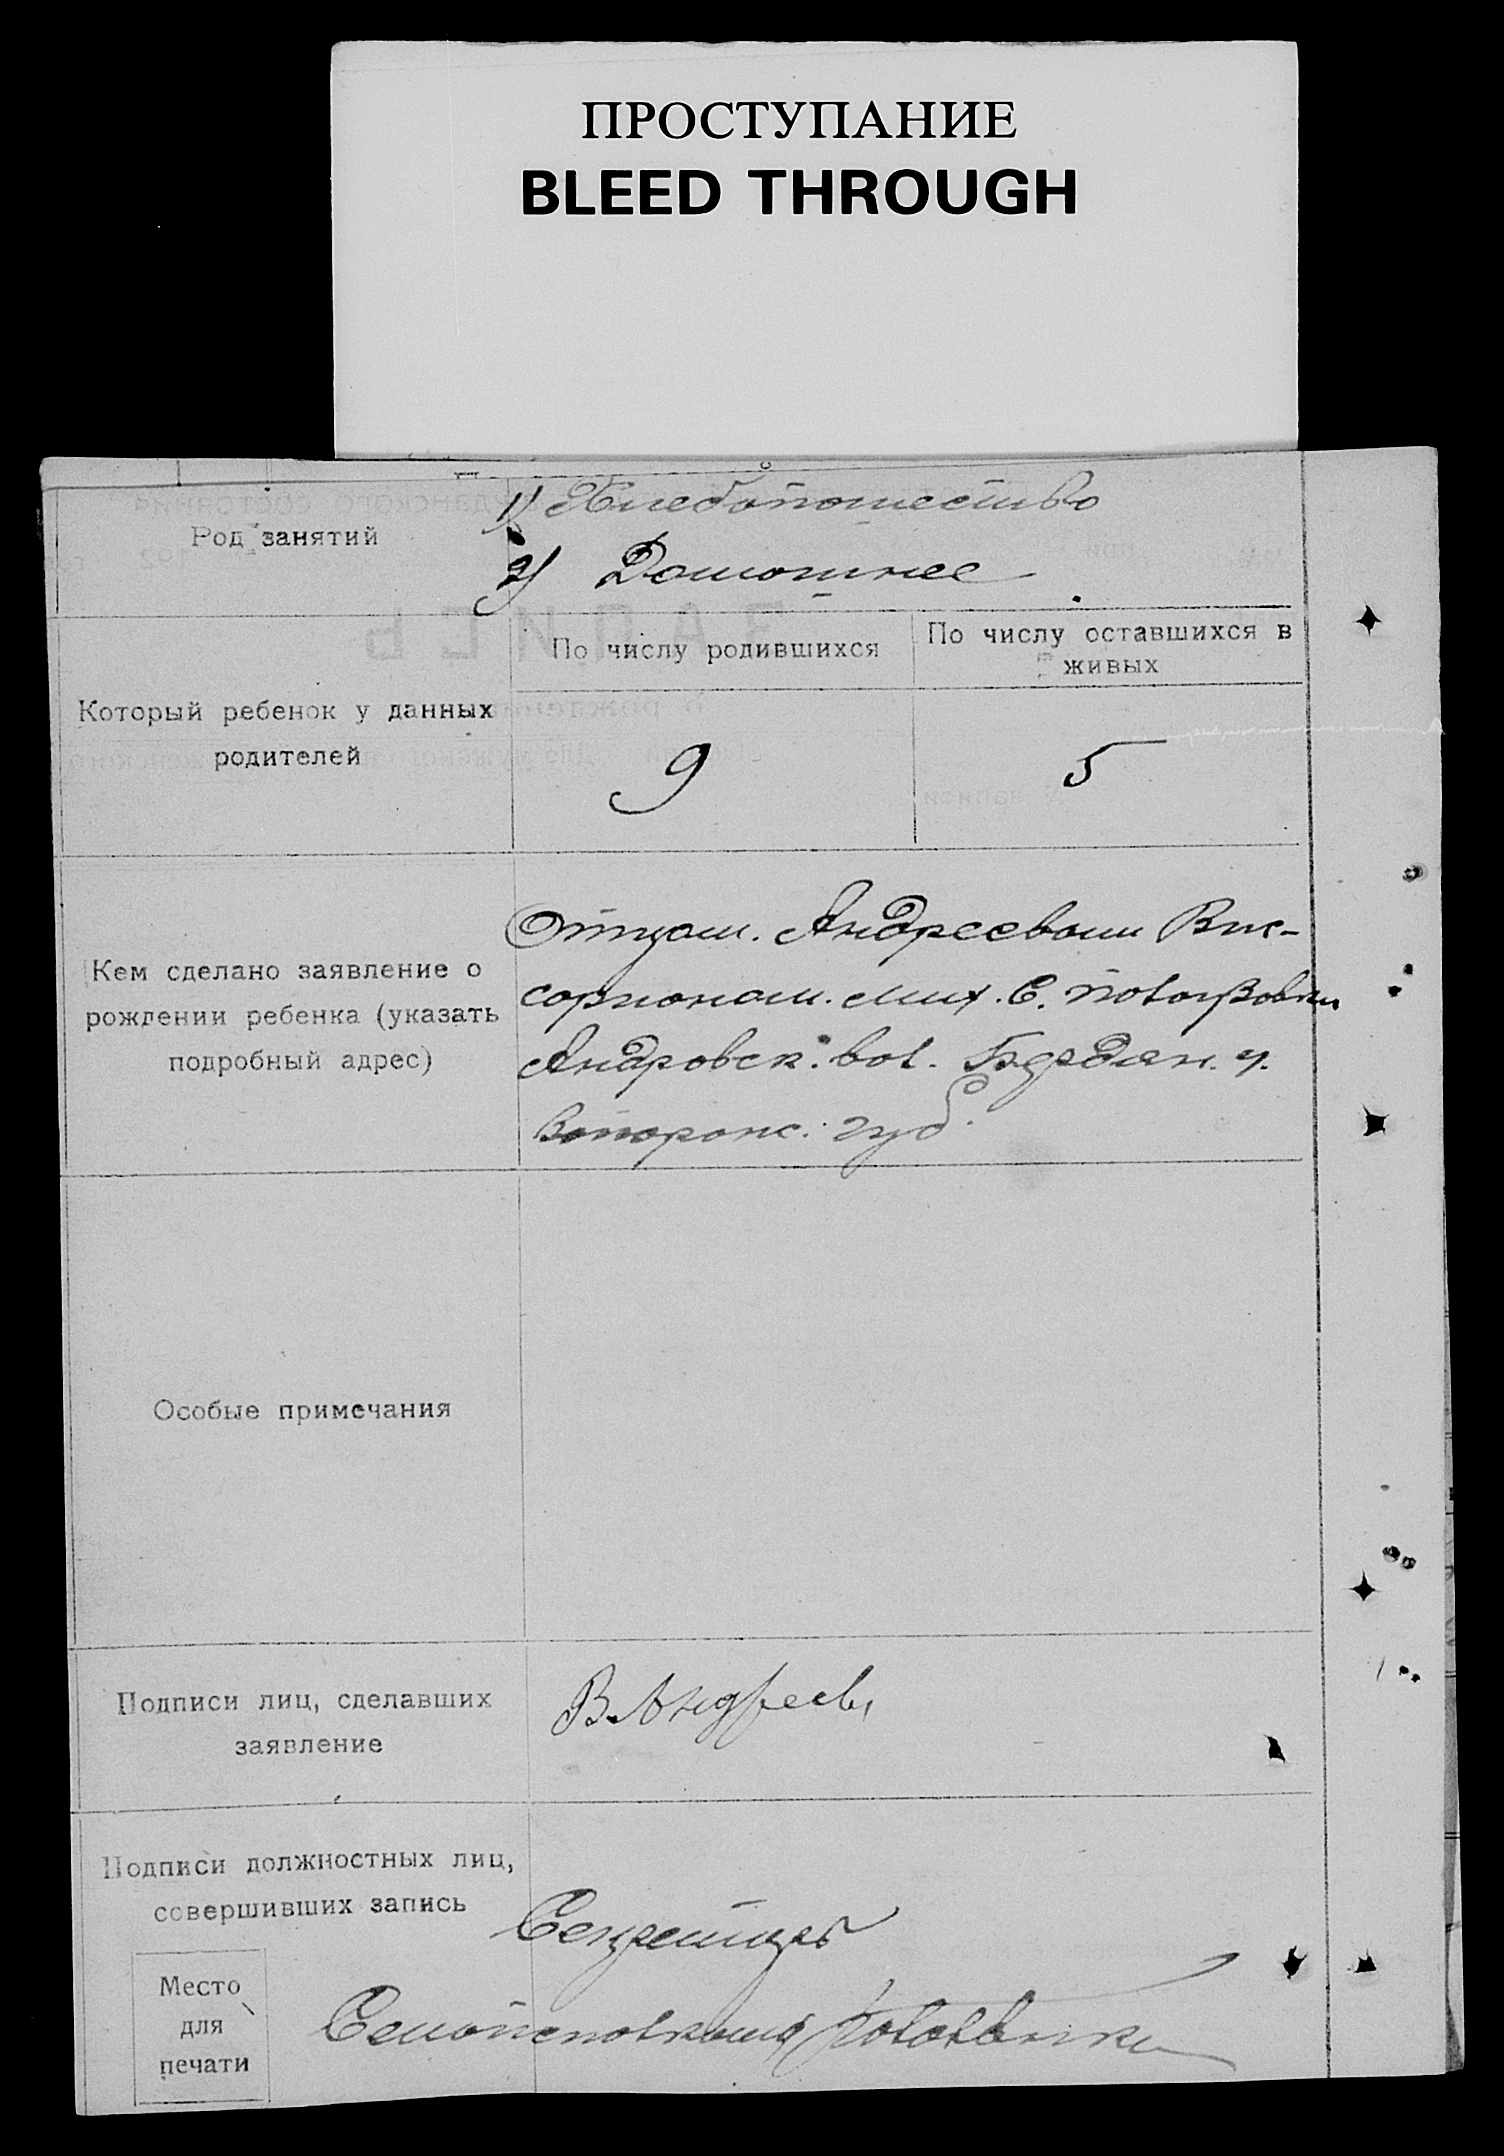 ПРОСТУПАНИЕ
BLEED THROUGH
Род занятий
1) Хлебопашество
2) Домашнее
Который ребенок у данных
родителей
По числу родившихся
По числу оставшихся в
живых
9
5
Кем сделано заявление о
рождении ребенка (указать
подробный адрес)
Отцом. Андреевым Вис-
сорионом.
Андровск. вол. Бердян. у.
губ.
Особые примечания
Подписи лиц, сделавших
заявление
В. Андреевъ
Подписи должностных лиц,
совершивших запись
Место
для
печати